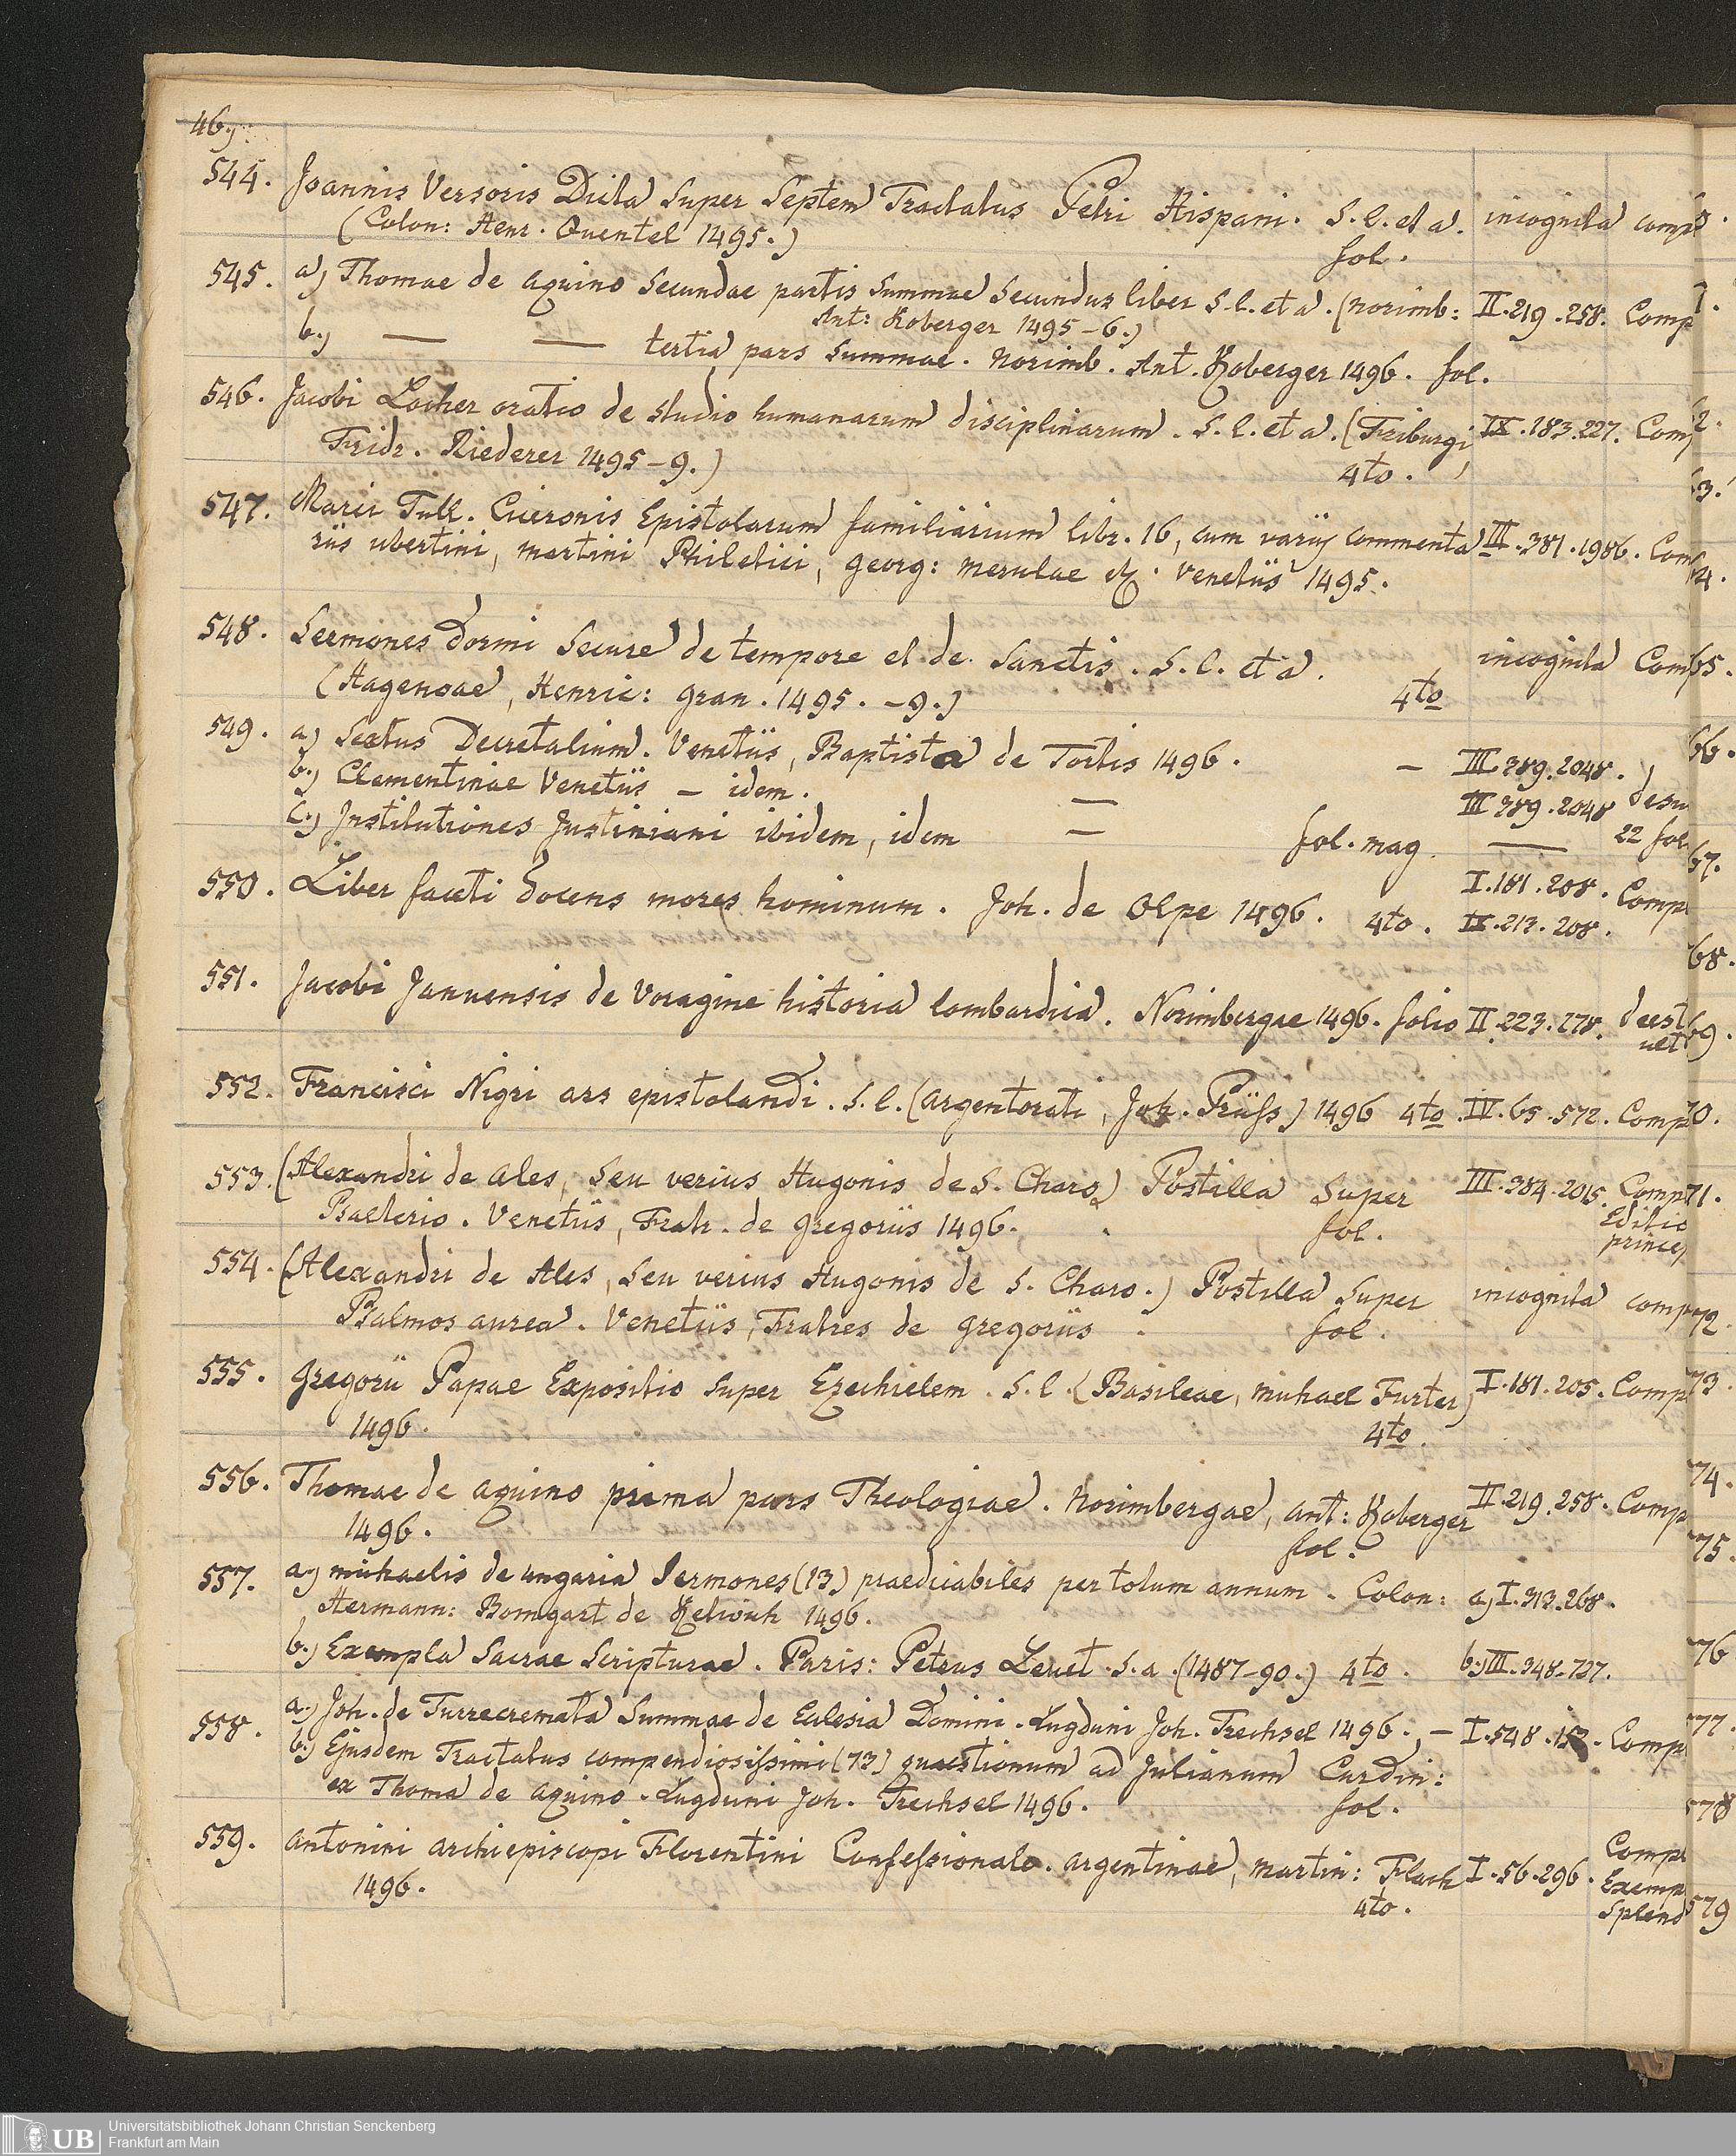 46.)
544. Joannis Versoris Dicta Super Septem Tractatus Petri Hispani. S. l. et a. incognita comp
(Colon: Henr. Quentel 1495.) fol.
545. a) Thomae de aquino Secundae partis Summae Secundus liber S. l. et a. (Norimb: II. 219. 258. Comp
Ant: Koberger 1495-6.)
b.) — — tertia pars Summae. Norimb. Ant. Koberger 1496. fol.
546. Jacobi Locher oratio de studio humanarum disciplinarum. S. l. et a. (Friburgi IX. 183. 227. Comp
Fridr. Riederer 1495-9.) 4to.
547. Marci Tull. Ciceronis Epistolarum familiarium libr. 16, cum variis commenta III. 381. 1986. Com
riis ubertini, martini Philetici, Georg: merulae &. Venetiis 1495.
548. Sermones Dormi Secure de tempore et de Sanctis. S. l. et a. incognita Com
(Hagenoae, Henric: Gran. 1495.-9.) 4to
549. a) Sextus Decretalium. Venetiis, Baptista de Tortis 1496. — III. 389. 2048.
b.) Clementinae Venetiis — idem. — III 389. 2048 desu
c.) Institutiones Justiniani ibidem, idem — fol. mag. — 22 fol
550. Liber faceti docens mores hominum. Joh. de Olpe 1496. 4to. I. 181. 208. Comp
IX. 213. 208.
551. Jacobi Januensis de Voragine historia lombardica. Norimbergae 1496. folio II. 223. 278. deest
ult
552. Francisci Nigri ars epistolandi. S. l. (argentorati, Joh. Prüss) 1496 4to. IV. 65. 572. Comp
553. (Alexandri de ales, Seu verius Hugonis de S. Charo) Postilla Super III. 384. 2015. Comp
Psalterio. Venetiis, Fratr. de gregoriis 1496. fol. Editio
princep
554. (Alexandri de Ales, Seu verius Hugonis de S. Charo.) Postilla Super incognita comp
Psalmos aurea. Venetiis, Fratres de gregoriis. fol.
555. Gregorii Papae Expositio Super Ezechielem. S. l. (Basileae, michael Furter) I. 181. 205. Comp
1496. 4to.
556. Thomae de aquino prima pars Theologiae. Norimbergae, ant: Koberger II. 219. 258. Comp
1496. fol.
557. a.) michaelis de ungaria Sermones (13) praedicabiles per totum annum. Colon: a) I. 313. 268.
Hermann: Bomgart de Ketwich 1496.
b.) Exempla Sacrae Scripturae. Paris: Petrus Levet. S. a. (1487-90.) 4to. b.) III. 348. 727.
558. a.) Joh. de Turrecremata Summae de Eclesia Domini. Lugduni Joh. Trechsel 1496. — I. 548. Comp
b.) Ejusdem Tractatus compendiosissimi (73) quaestionum ad Julianum Cardin:
ex Thoma de aquino. Lugduni Joh. Trechsel 1496. fol.
559. antonini archiepiscopi Florentini Confessionale. argentinae, martin: Flach I. 56. 296. Comp
1496. 4to. Exemp
Splend
2.
3.
65.
66.
67.
68.
69.
70.
71.
72.
73.
74.
75.
76
77.
578
579
UB Universitätsbibliothek Johann Christian Senckenberg
Frankfurt am Main